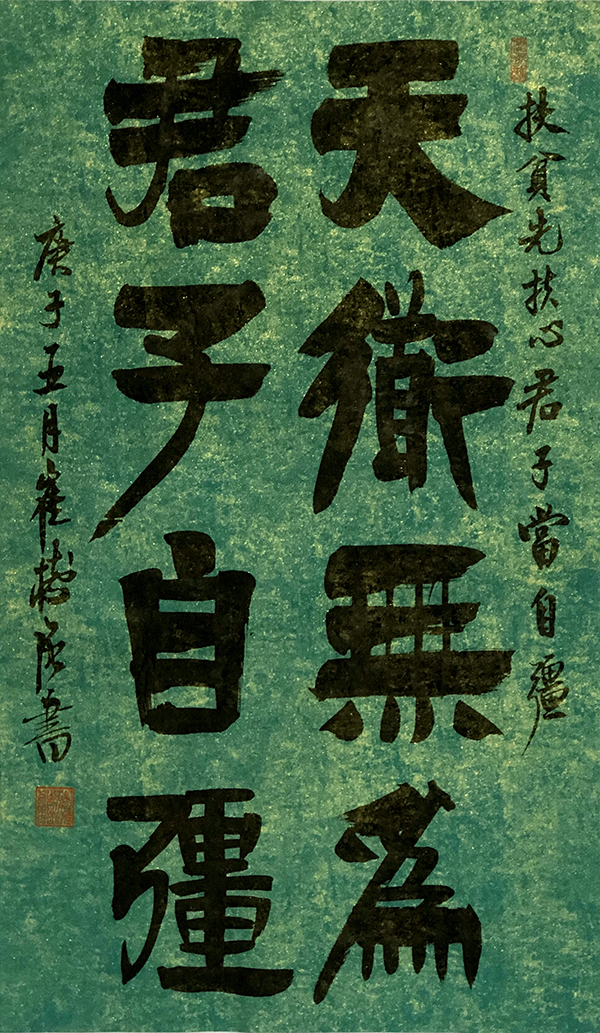 扶貧先扶心君子當自彊
天衜無為
君子自彊
庚子五月崔樹書